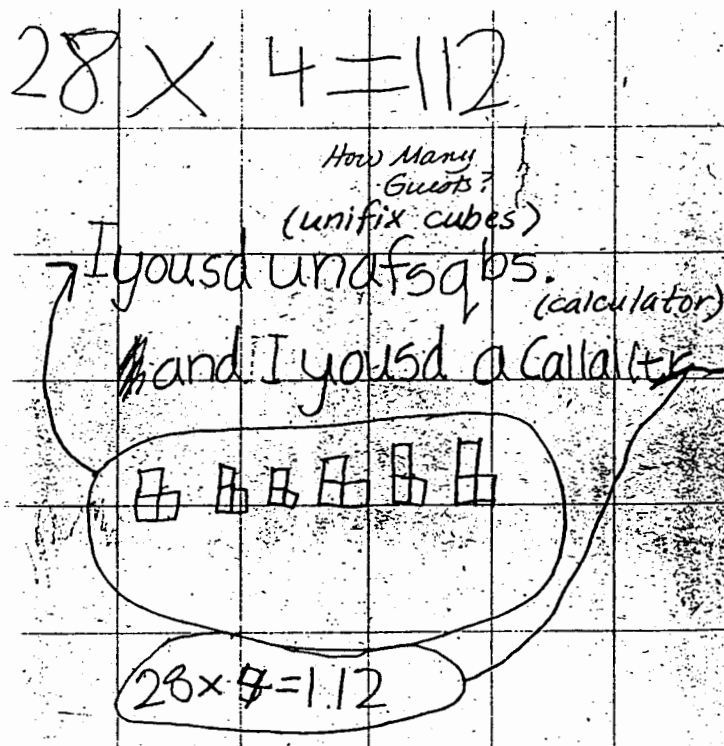 28 X 4 = 112
How Many
Guests?
(unifix cubes)
I yousd unafsqbs.
(calculator)
and I yousd a Callalltr
28 x 4 = 1.12